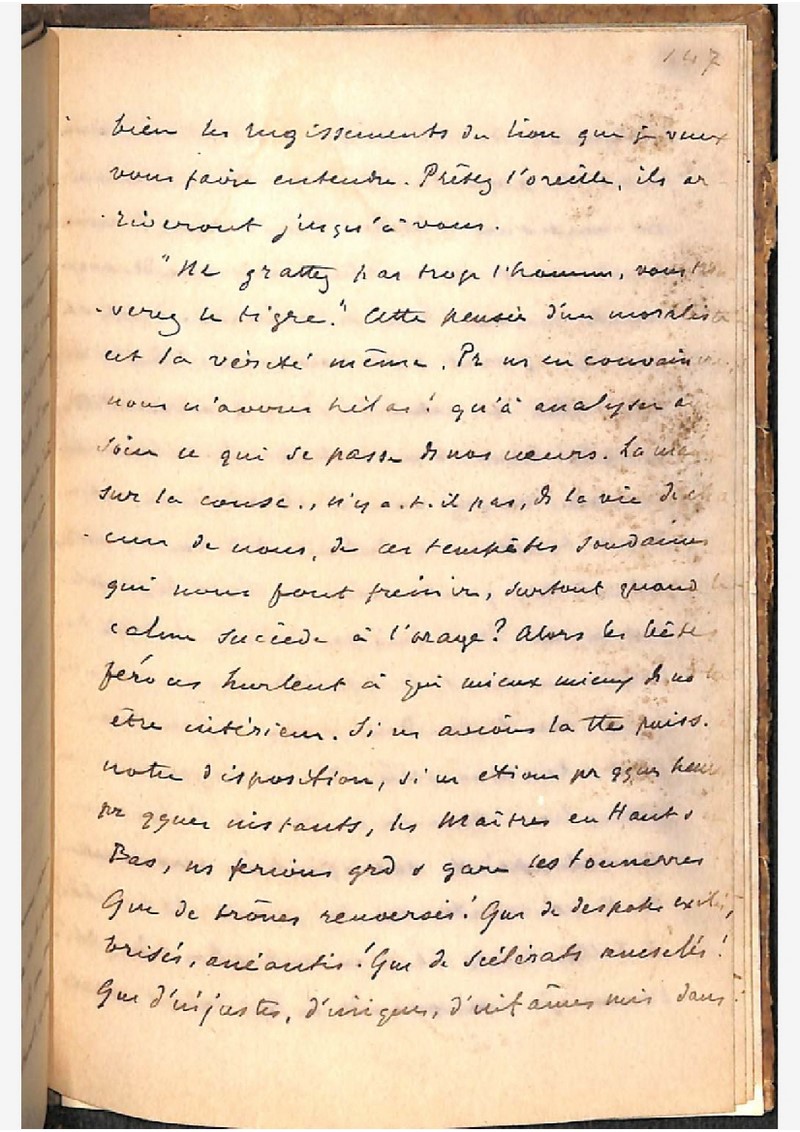 147
bien les rugissements du lion que je veux
vous faire entendre. Prêtez l'oreille, ils ar
riveront jusqu'à vous.
"Ne grattez pas trop l'homme, vous
verez le tigre." Cette pensée d'un moraliste
est la vérité même. Pr ns en convaincre
nous n'avons hélas! qu'à analyser a
soin ce qui se passe ds nos cœurs. La main
sur la consc., n'y a-t-il pas, ds la vie de cha
cun de nous, de ces tempêtes soudaines
qui nous font frémir, surtout quand le
calme succède à l'orage? Alors les bêtes
féroces hurlent à qui mieux mieux ds no
être intérieur. Si ns avions la tte puiss.
notre disposition, si ns étions pr qques heures
pr qques instants, les Maîtres en Haut &
Bas, ns serions grds & gare les tonnerres
Que de trônes renversés! Que de despotes exilés,
brisés, anéantis! Que de scélérats muselés!
Que d'injustes, d'iniques, d'infâmes mis dans